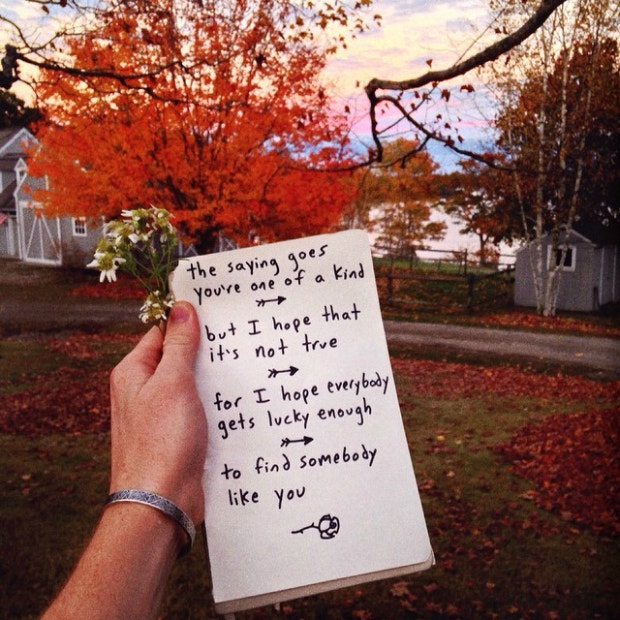 the saying goes
you're one of a kind
but I hope that
it's not true
for I hope everybody
gets lucky enough
to find somebody
like you